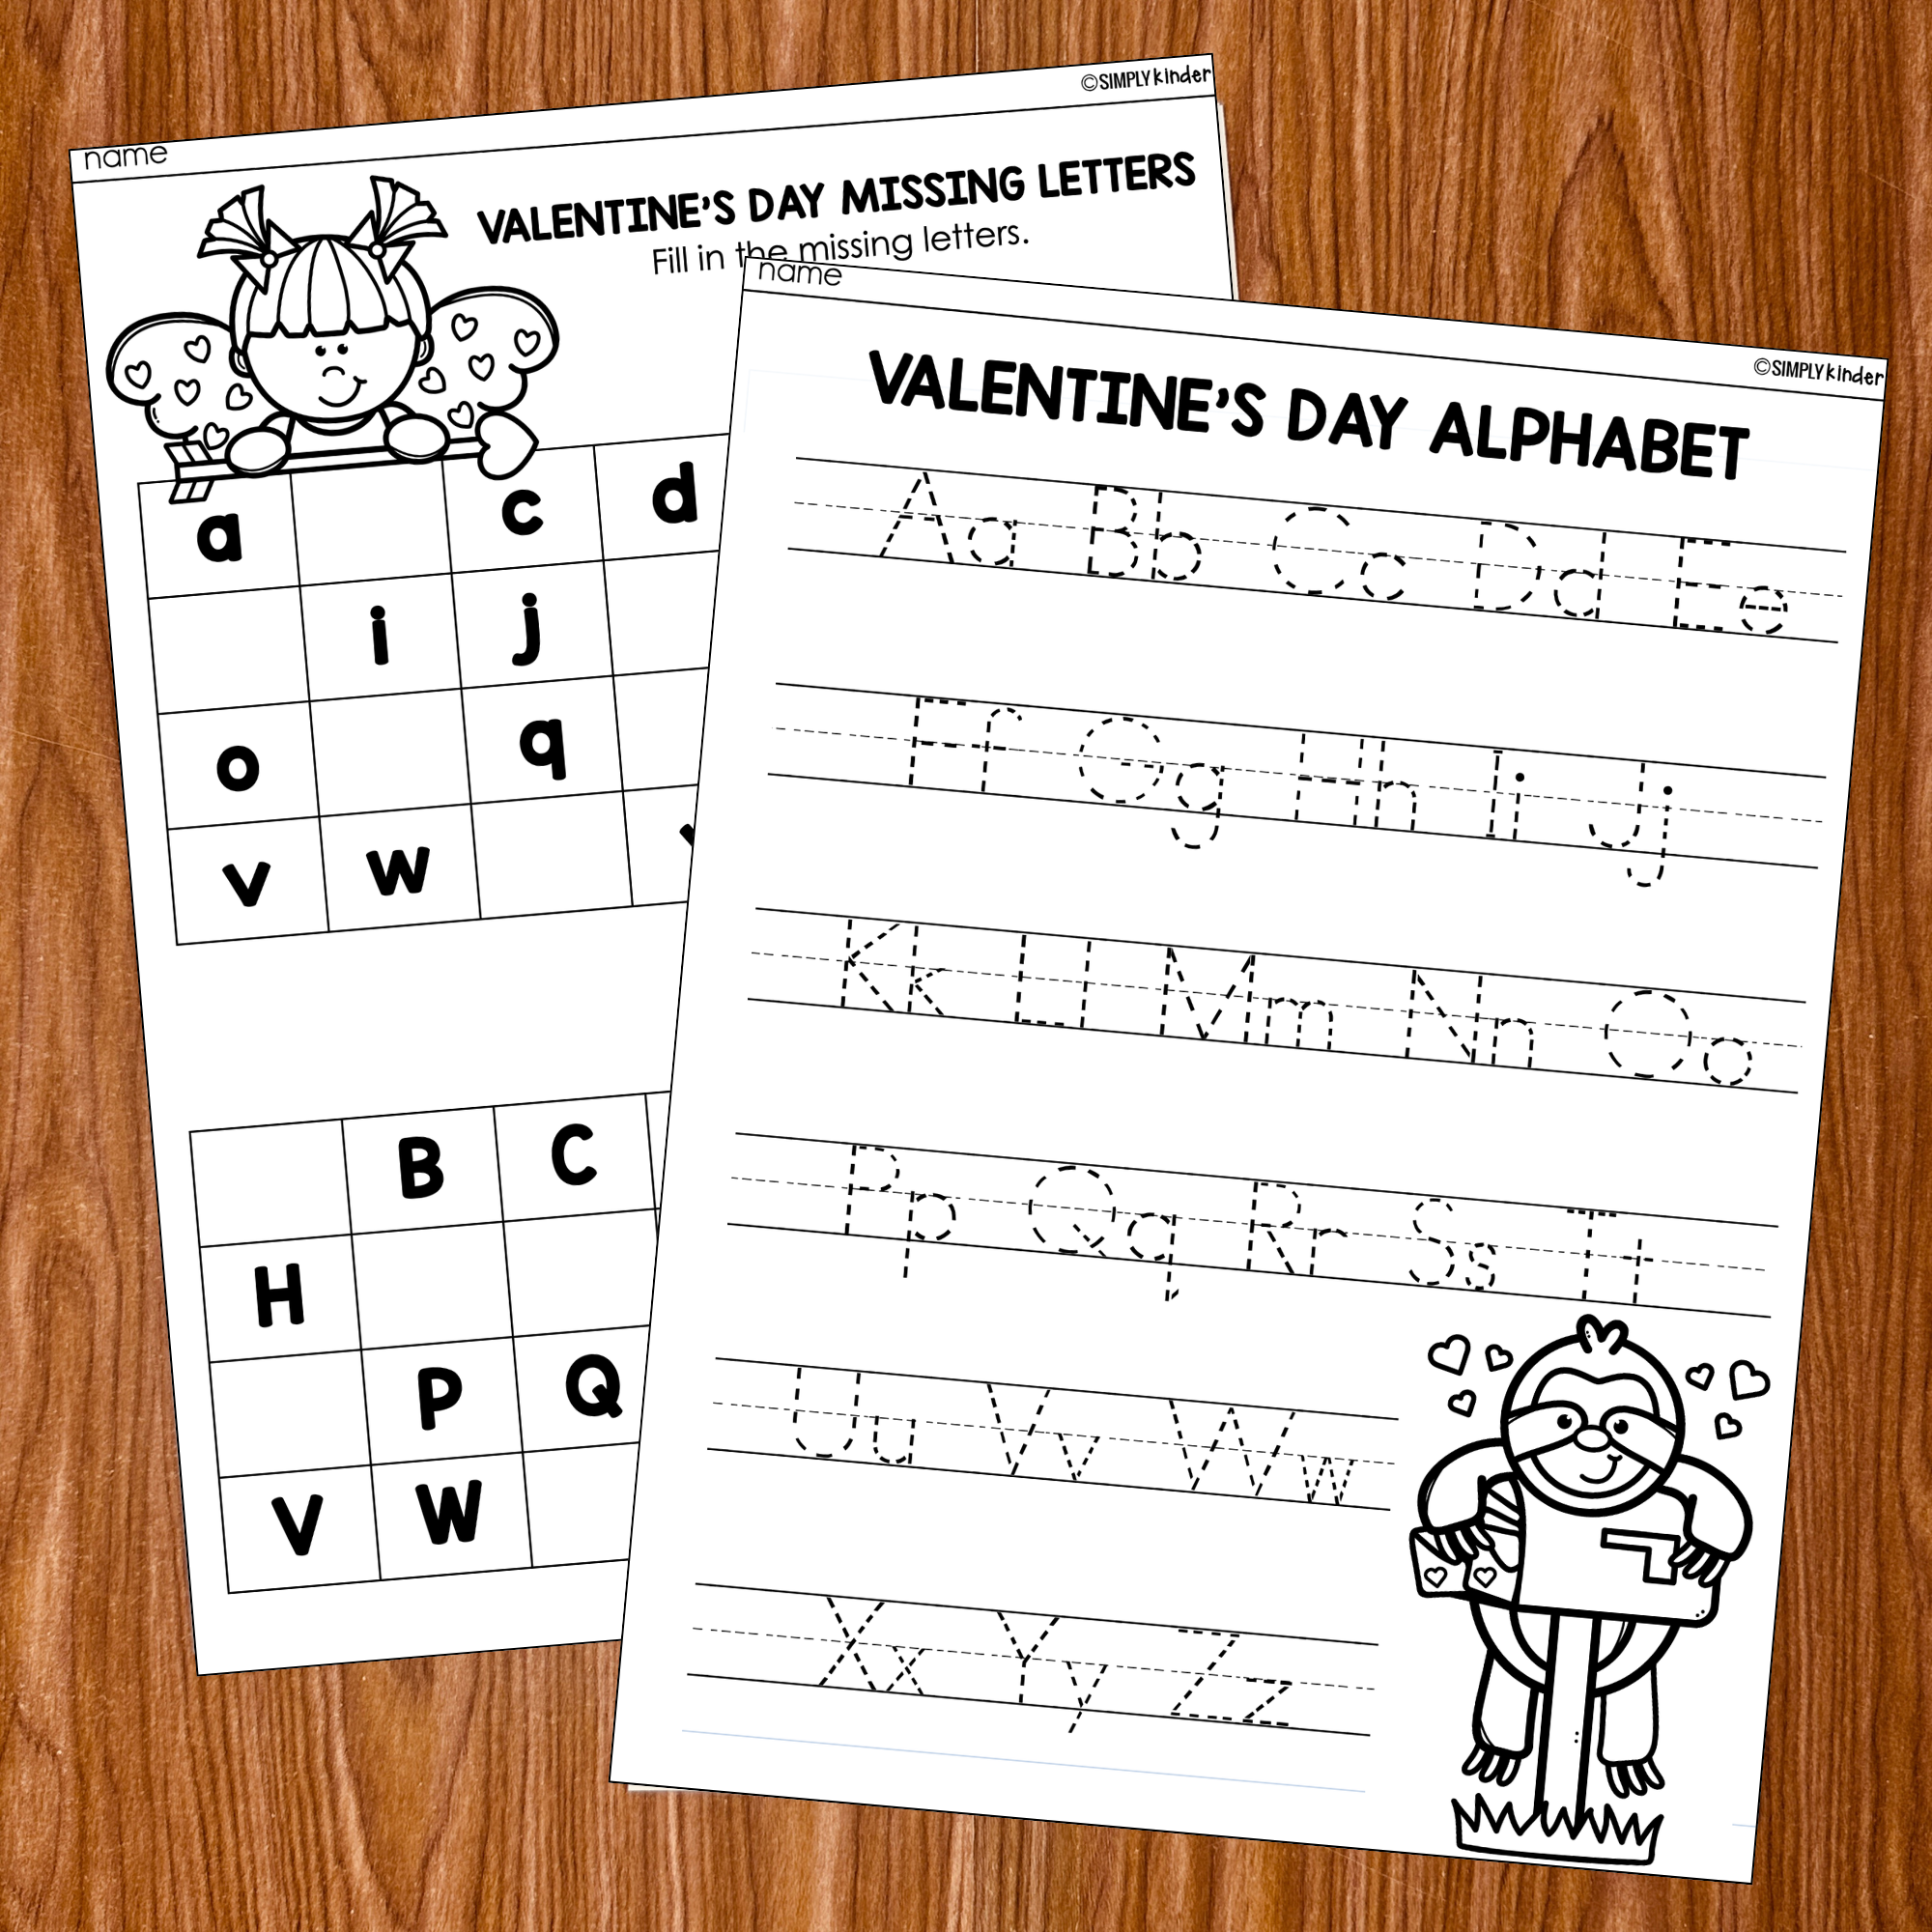 ©SIMPLYkinder
name
VALENTINE'S DAY MISSING LETTERS
Fill in the missing letters.
a c d
i j
o q
v w
B C
H
P Q
V W
name
©SIMPLYkinder
VALENTINE'S DAY ALPHABET
Aa Bb Cc Dd Ee
Ff Gg Hh Ii Jj
Kk Ll Mm Nn Oo
Pp Qq Rr Ss Tt
Uu Vv Ww
Xx Yy Zz